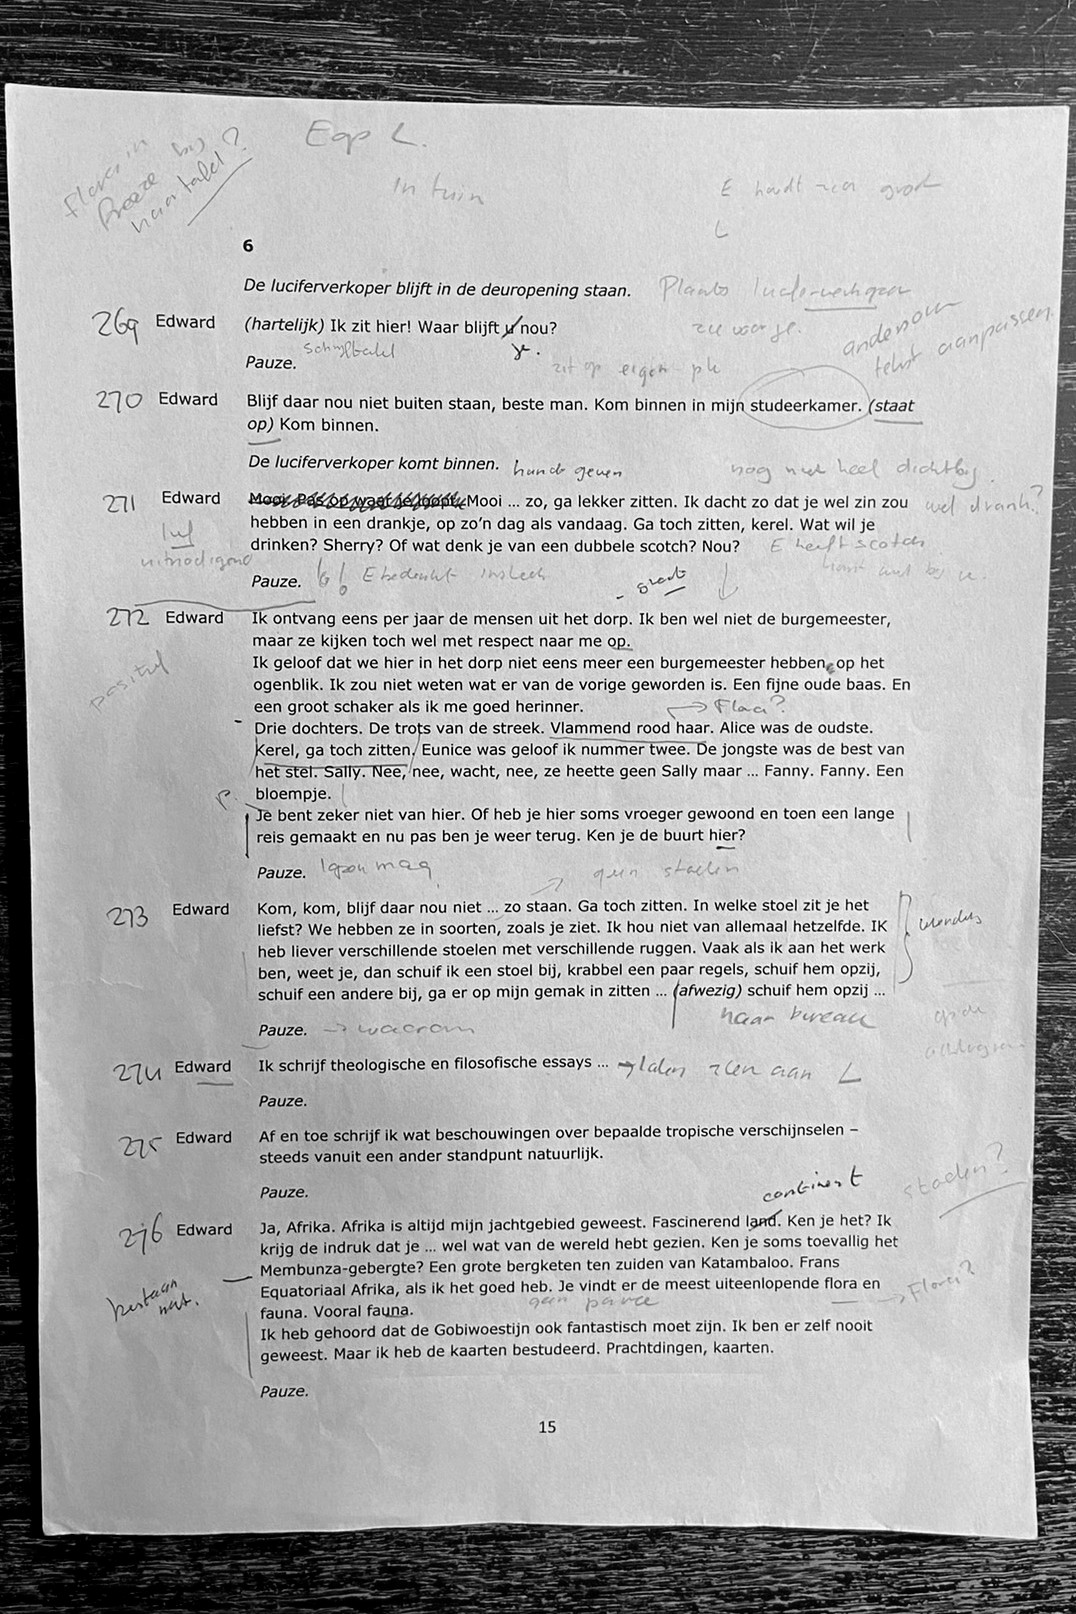 Eop L.
in tuin
naar tafel?
E houdt zich groot
L
6
De luciferverkoper blijft in de deuropening staan. Plaats luciferverkoper
269 Edward (hartelijk) Ik zit hier! Waar blijft u nou?
je.
Pauze.
zit op eigen plek
andenom
tekst aanpassen
270 Edward Blijf daar nou niet buiten staan, beste man. Kom binnen in mijn studeerkamer. (staat
op) Kom binnen.
De luciferverkoper komt binnen. hand geven nog niet heel dichtbij
271 Edward Mooi. Pas op waar je loopt. Mooi ... zo, ga lekker zitten. Ik dacht zo dat je wel zin zou wel drank?
hebben in een drankje, op zo’n dag als vandaag. Ga toch zitten, kerel. Wat wil je
drinken? Sherry? Of wat denk je van een dubbele scotch? Nou? E heeft scotch
uitnodigend
Pauze.
272 Edward Ik ontvang eens per jaar de mensen uit het dorp. Ik ben wel niet de burgemeester,
maar ze kijken toch wel met respect naar me op.
positief
Ik geloof dat we hier in het dorp niet eens meer een burgemeester hebben op het
ogenblik. Ik zou niet weten wat er van de vorige geworden is. Een fijne oude baas. En
een groot schaker als ik me goed herinner.
Drie dochters. De trots van de streek. Vlammend rood haar. Alice was de oudste.
Kerel, ga toch zitten. Eunice was geloof ik nummer twee. De jongste was de best van
het stel. Sally. Nee, nee, wacht, nee, ze heette geen Sally maar ... Fanny. Fanny. Een
bloempje.
P.
Je bent zeker niet van hier. Of heb je hier soms vroeger gewoond en toen een lange
reis gemaakt en nu pas ben je weer terug. Ken je de buurt hier?
Pauze.
273 Edward Kom, kom, blijf daar nou niet ... zo staan. Ga toch zitten. In welke stoel zit je het
liefst? We hebben ze in soorten, zoals je ziet. Ik hou niet van allemaal hetzelfde. IK
heb liever verschillende stoelen met verschillende ruggen. Vaak als ik aan het werk
ben, weet je, dan schuif ik een stoel bij, krabbel een paar regels, schuif hem opzij,
schuif een andere bij, ga er op mijn gemak in zitten ... (afwezig) schuif hem opzij ...
naar bureau
Pauze. → waarom
274 Edward Ik schrijf theologische en filosofische essays ... → laten zien aan L
Pauze.
275 Edward Af en toe schrijf ik wat beschouwingen over bepaalde tropische verschijnselen –
steeds vanuit een ander standpunt natuurlijk.
Pauze.
continent
276 Edward Ja, Afrika. Afrika is altijd mijn jachtgebied geweest. Fascinerend land. Ken je het? Ik
krijg de indruk dat je ... wel wat van de wereld hebt gezien. Ken je soms toevallig het
Membunza-gebergte? Een grote bergketen ten zuiden van Katambaloo. Frans
Equatoriaal Afrika, als ik het goed heb. Je vindt er de meest uiteenlopende flora en
bestaan
niet.
fauna. Vooral fauna. geen pauze → Flora?
Ik heb gehoord dat de Gobiwoestijn ook fantastisch moet zijn. Ik ben er zelf nooit
geweest. Maar ik heb de kaarten bestudeerd. Prachtdingen, kaarten.
Pauze.
15